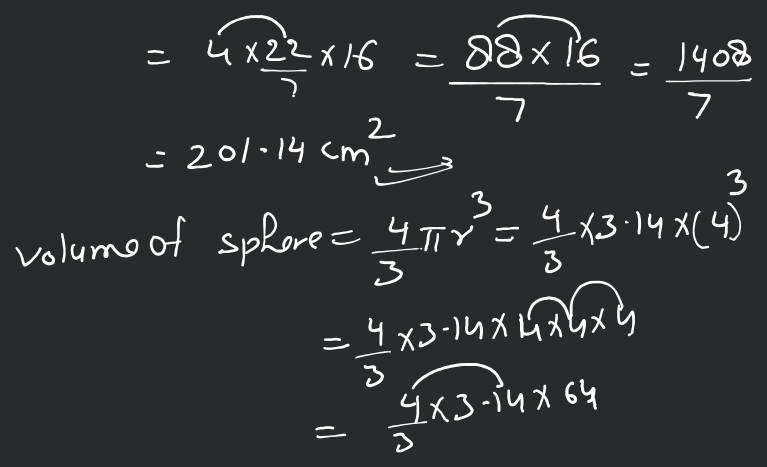 = 4 × 22/7 × 16 = 88 × 16/7 = 1408/7
= 201.14 cm²
volume of sphere = 4/3 π r³ = 4/3 × 3.14 × (4)³
= 4/3 × 3.14 × 4 × 4 × 4
= 4/3 × 3.14 × 64